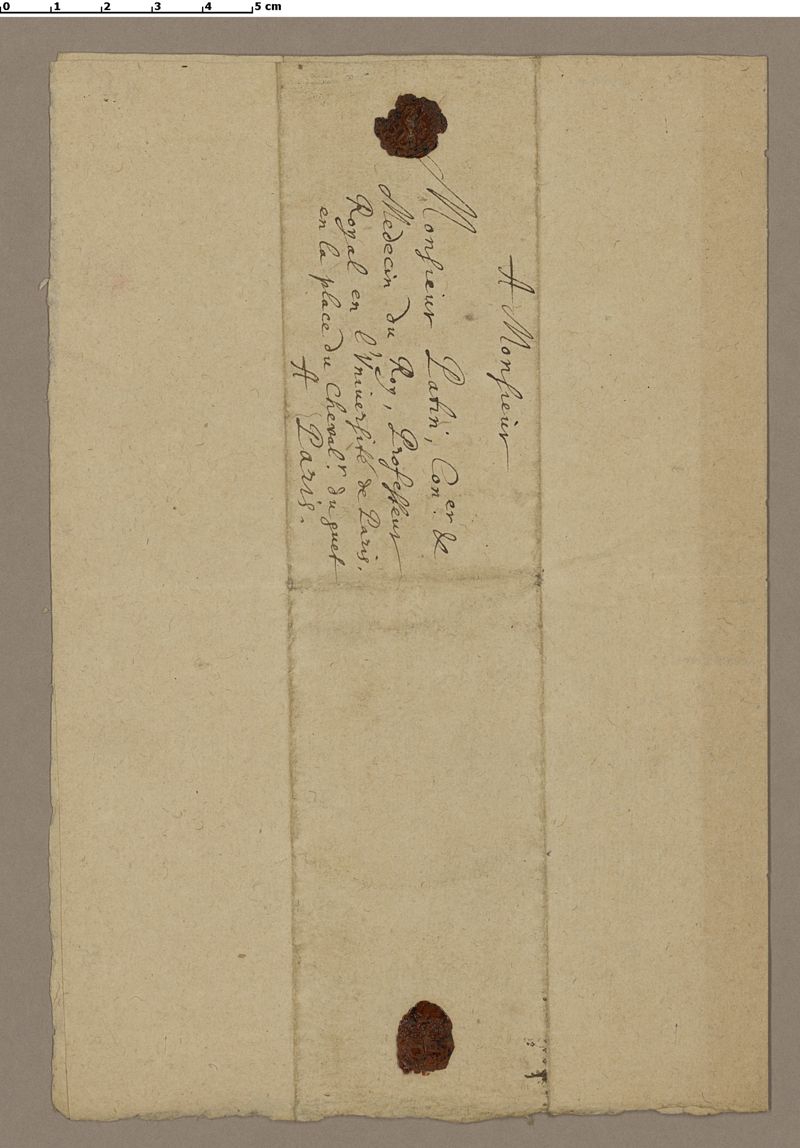 0 1 2 3 4 5 cm
A Monsieur
Monsieur Patin, Con.er &
Medecin du Roy, Professeur
Royal en l'Vniversité de Paris.
en la place du Cheval.r du guet
A Paris.